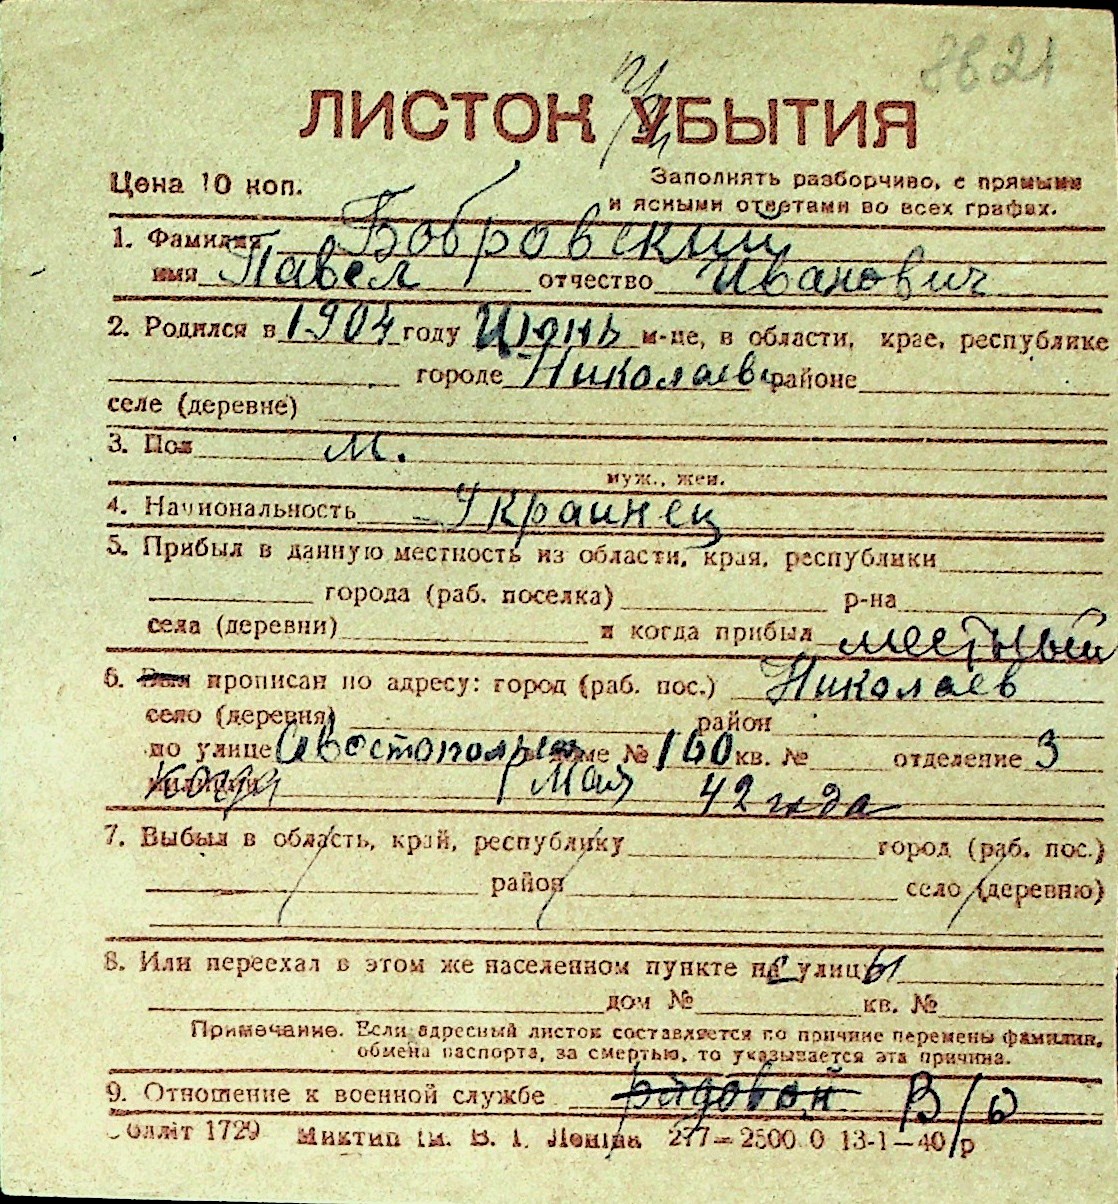 8821
ЛИСТОК УБЫТИЯ
Цена 10 коп.
Заполнять разборчиво, с прямыми
и ясными ответами во всех графах.
1. Фамилия Бобровский
имя Павел отчество Иванович
2. Родился в 1904 году Июнь м-це, в области, крае, республике
городе Николаев районе
селе (деревне)
3. Пол м.
муж., жен.
4. Национальность Украинец
5. Прибыл в данную местность из области, края, республики
города (раб. поселка) р-на
села (деревни) и когда прибыл местный
6. Был прописан по адресу: город (раб. пос.) Николаев
село (деревня) район
по улице доме № 160 кв. № отделение 3
милиции когда Мая 42 года
7. Выбыл в область, край, республику город (раб. пос.)
район село (деревню)
8. Или переехал в этом же населенном пункте с улицы
дом № кв. №
Примечание. Если адресный листок составляется по причине перемены фамилии,
обмена паспорта, за смертью, то указывается эта причина.
9. Отношение к военной службе рядовой В/о
1729 Миктип ім. В. І. Леніна 277—2500 0 13-1—40 р